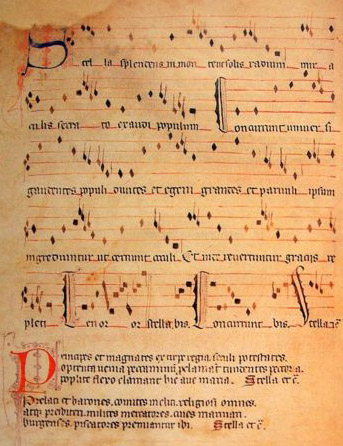 Stel la splendens in mon te ut solis radium mir a
culis serra to exaudi populum Concurrunt univer si
gaudentes populi divites et egeni grandes et parvuli ipsum
ingrediuntur ut cernunt oculi Et inde revertuntur gracijs re
pleti Tenor or stella bis. Concurrunt bis Stella et c.
Principes et magnates ex stirpe regia seculi potestates
optenta venia peccaminum tundentes pectora.
poplite flexo clamant hic ave maria. Stella et c.
Prelati et barones. comites incliti. religiosi omnes.
atque presbiteri. milites mercatores. cives marinari.
burgenses. piscatores premiantur ibi. Stella et c.